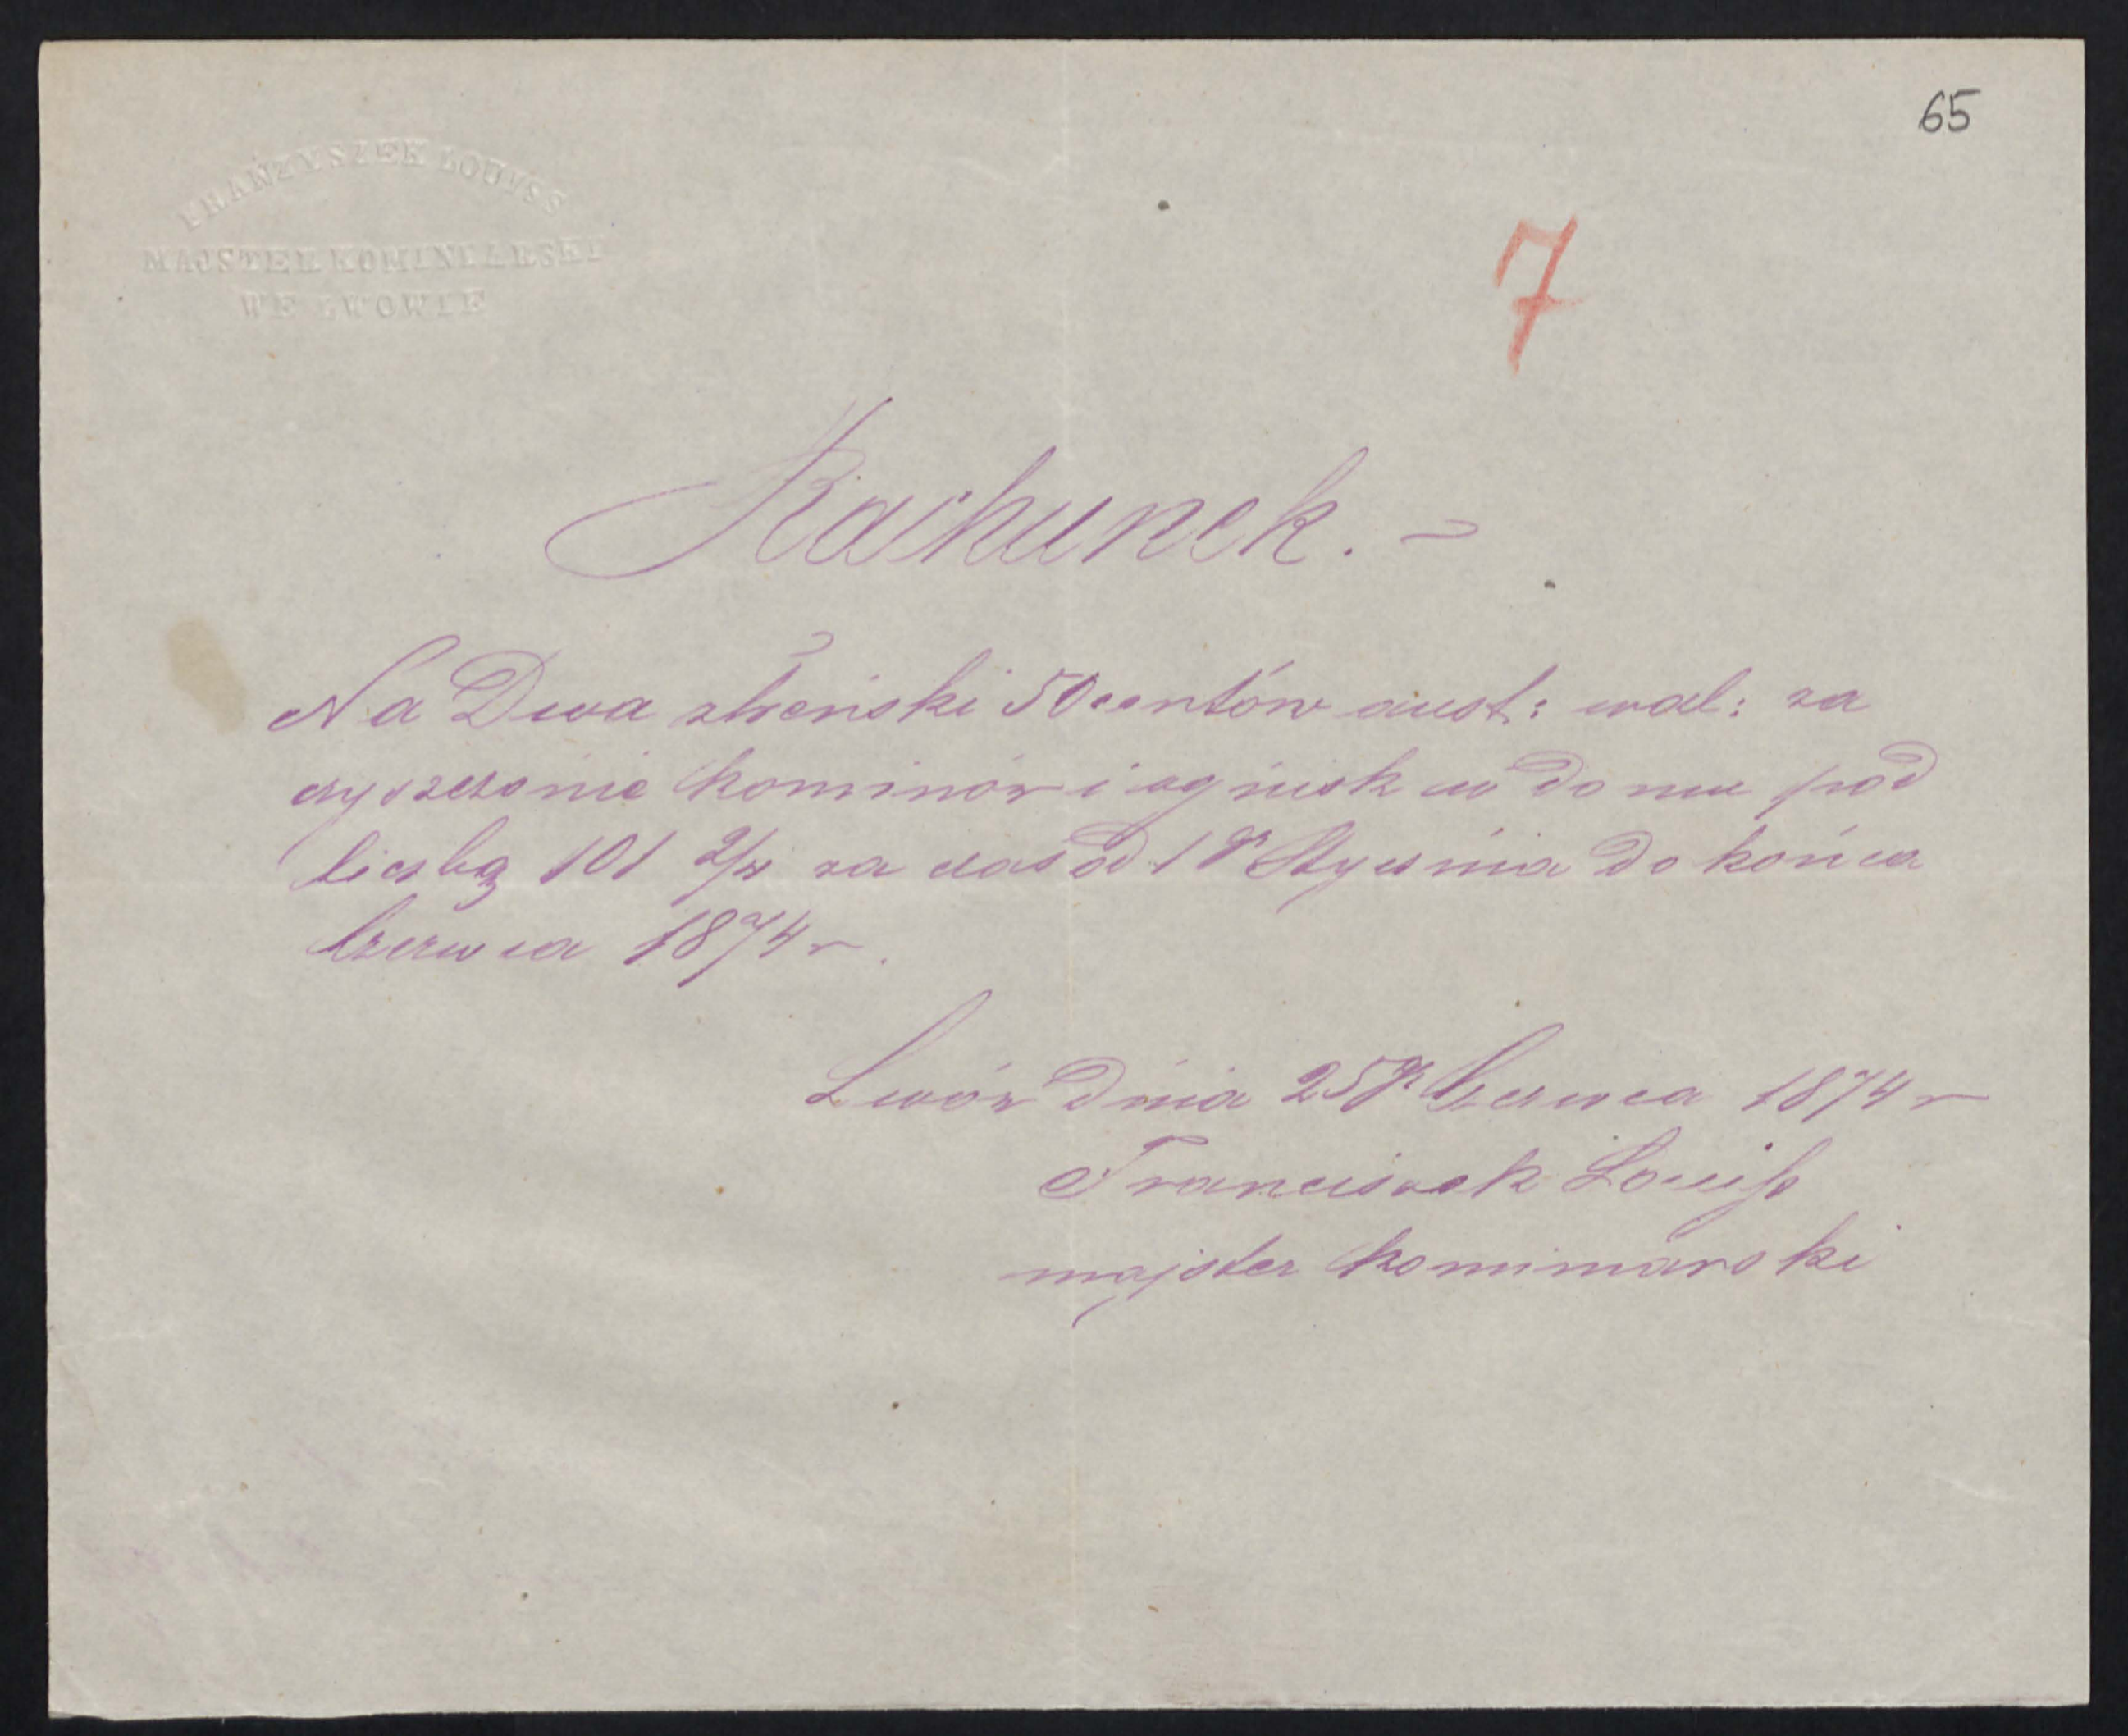 65
FRANZYSZEK LOUYSS
MAJSTER KOMINIARSKI
WE LWOWIE
7
Rachunek. -
Na Dwa złreński 50 centów aust: wal: za
czyszczenie kominów i ognisk w domu pod
liczbą 101 2/4 za czas od 1go Stycznia do końca
Czerwca 1874 r.
Lwów dnia 25go Czerwca 1874 r
Franciszek Louiss
majster kominiarski